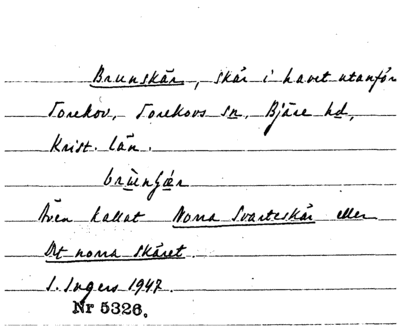 Brunskär, skär i havet utanför
Torekov, Torekovs sn, Bjäre hd,
Krist. län.
Även kallat Norra Svarteskär eller
Det norra skäret.
S. Ingers 1947.
Nr 5326.